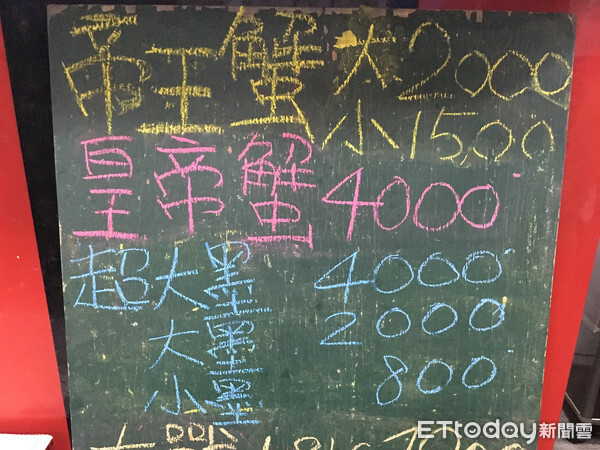 帝王蟹大2000
小1500
皇帝蟹4000
超大黑4000
大黑2000
小黑800
ETtoday新聞雲